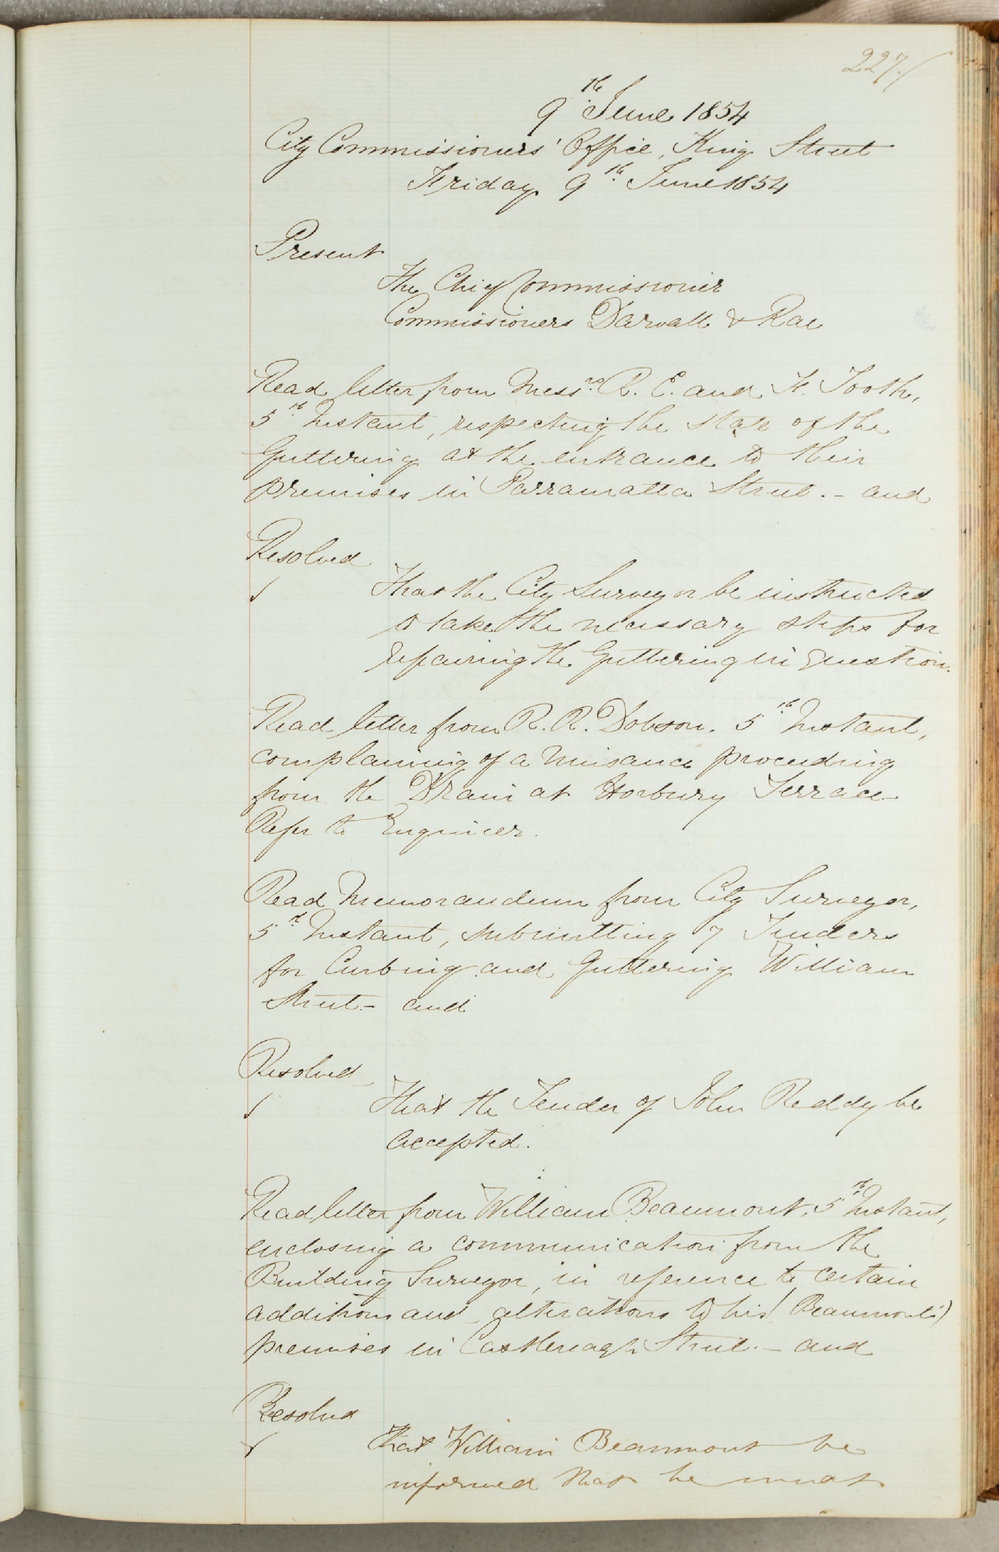 227/
9th June 1854
City Commissioners' Office, King Street
Friday 9th June 1854
Present
The Chief Commissioner
Commissioners Darvall & Rae
Read letter from Messrs R. E. and F. Tooth,
5th Instant, respecting the state of the
Guttering at the entrance to their
premises in Parramatta Street. - and
Resolved
That the City Surveyor be instructed
to take the necessary steps for
repairing the Guttering in question.
Read letter from R. R. Dobson. 5th Instant,
complaining of a nuisance proceeding
from the Drain at Horbury Terrace
Refer to Engineer.
Read Memorandum from City Surveyor,
5th Instant, submitting 7 Tenders
for Curbing and Guttering William
Street - and
Resolved
That the Tender of John Reddy be
accepted.
Read letter from William Beaumont, 5th Instant,
enclosing a communication from the
Building Surveyor, in reference to certain
additions and alterations to his (Beaumont's)
premises in Castlereagh Street. - and
Resolved
That William Beaumont be
informed that he must